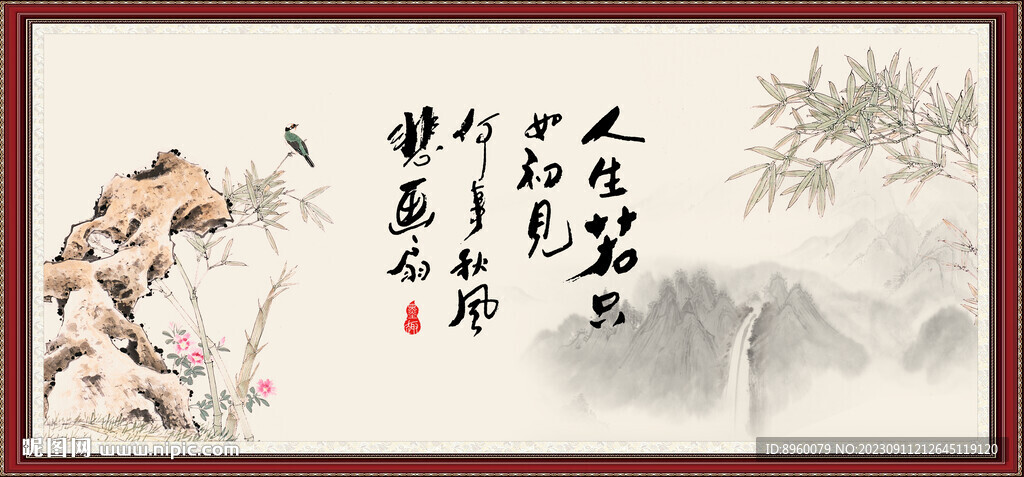 人生若只
如初见
何事秋风
悲画扇
墨趣
昵图网 www.nipic.com
ID:8960079 NO:20230911212645119120